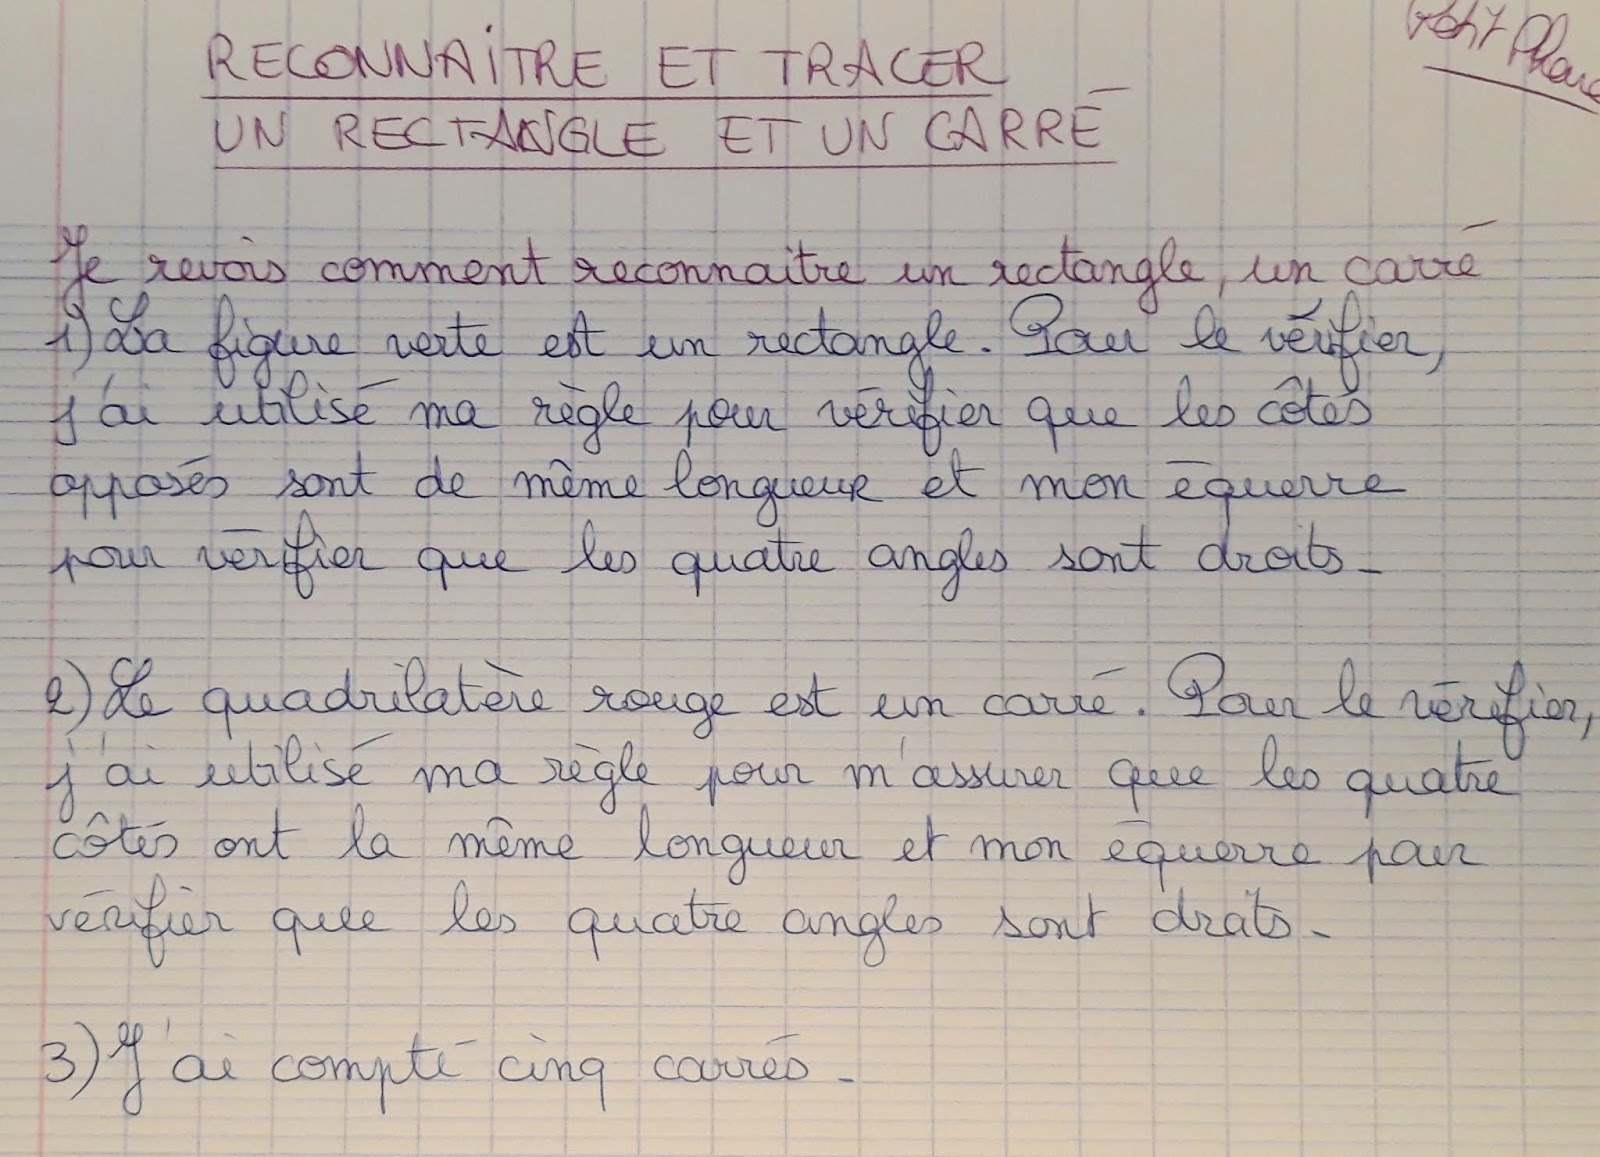 Petit Phare
RECONNAITRE ET TRACER
UN RECTANGLE ET UN CARRÉ
Je revois comment reconnaitre un rectangle, un carré
1) La figure verte est un rectangle. Pour le vérifier,
j'ai utilisé ma règle pour vérifier que les côtés
opposés sont de même longueur et mon équerre
pour vérifier que les quatre angles sont droits.
2) Le quadrilatère rouge est un carré. Pour le vérifier,
j'ai utilisé ma règle pour m'assurer que les quatre
côtés ont la même longueur et mon équerre pour
vérifier que les quatre angles sont droits.
3) J'ai compté cinq carrés.